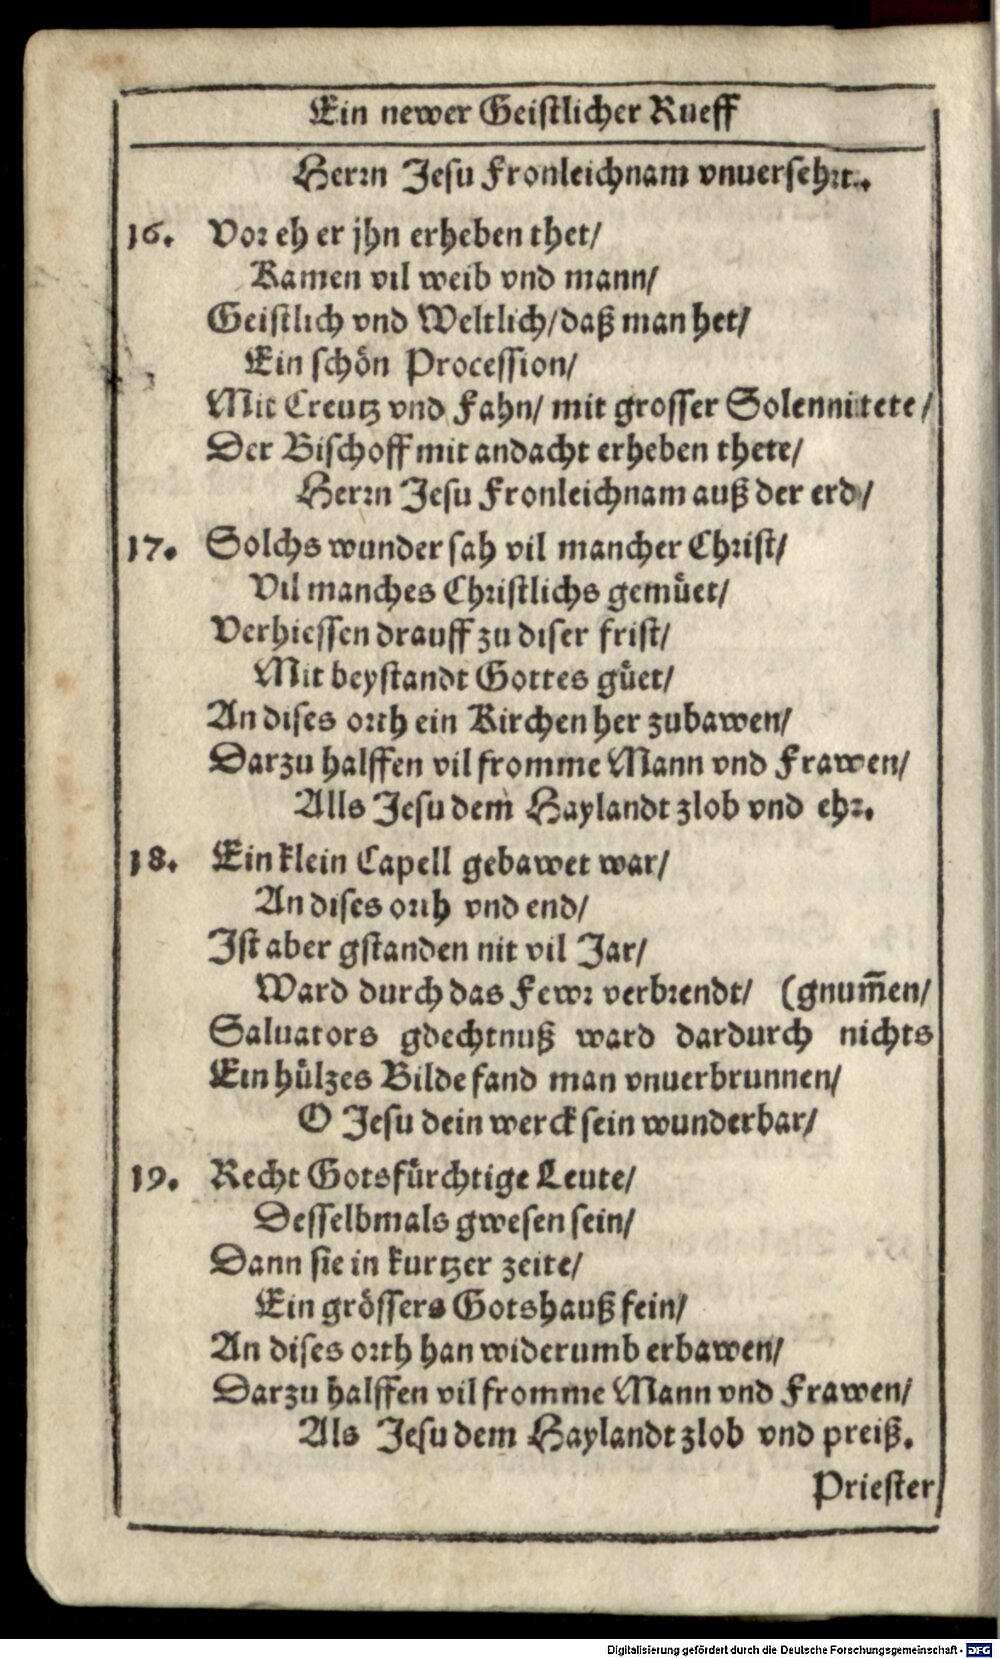 Ein newer Geistlicher Rueff
Herrn Jesu Fronleichnam vnuersehrt.
16. Vor eh er jhn erheben thet/
Kamen vil weib vnd mann/
Geistlich vnd Weltlich/daß man het/
Ein schön Procession/
Mit Creutz vnd Fahn/ mit grosser Solennitete/
Der Bischoff mit andacht erheben thete/
Herrn Jesu Fronleichnam auß der erd/
17. Solchs wunder sah vil mancher Christ/
Vil manches Christlichs gemuͤet/
Verhiessen drauff zu diser frist/
Mit beystandt Gottes guͤet/
An dises orth ein Kirchen her zubawen/
Darzu halffen vil fromme Mann vnd Frawen/
Alls Jesu dem Haylandt zlob vnd ehr.
18. Ein klein Capell gebawet war/
An dises orth vnd end/
Ist aber gstanden nit vil Jar/
Ward durch das Fewr verbrendt/ (gnum̃en/
Saluators gdechtnuß ward dardurch nichts
Ein huͤlzes Bilde fand man vnuerbrunnen/
O Jesu dein werck sein wunderbar/
19. Recht Gotsfuͤrchtige Leute/
Desselbmals gwesen sein/
Dann sie in kurtzer zeite/
Ein groͤssers Gotshauß fein/
An dises orth han widerumb erbawen/
Darzu halffen vil fromme Mann vnd Frawen/
Als Jesu dem Haylandt zlob vnd preiß.
Priester
Digitalisierung gefördert durch die Deutsche Forschungsgemeinschaft - DFG